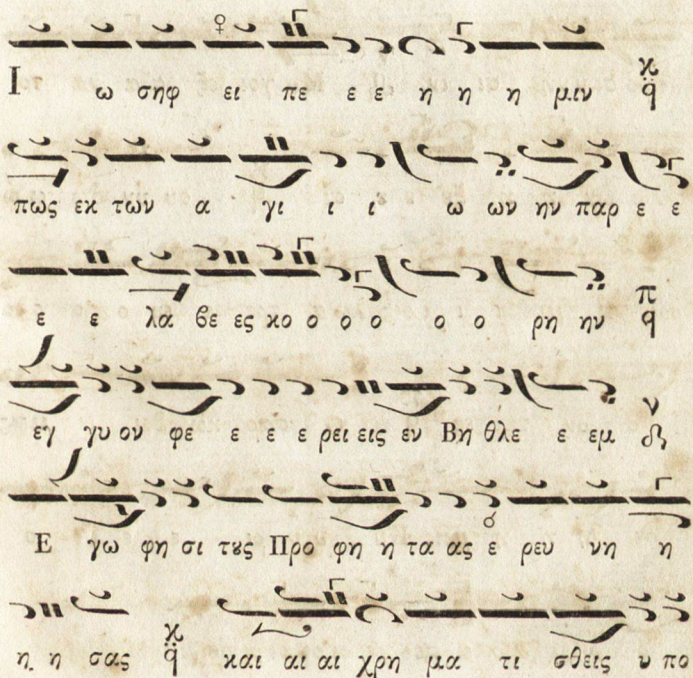 Ι ω σηφ ει πε ε ε η η η μιν χ q̈
πως εκ των α γι ι ι ω ων ην παρ ε ε
ε ε λα βε ες κο ο ο ο ο ο ρη ην π q̈
εγ γυ ον φε ε ε ε ρει εις εν Βη θλε ε εμ ν
Ε γω φη σι τȣς Προ φη η τα ας ε ρευ νη η
η η σας χ q̈ και αι αι χρη μα τι σθεις υ πο